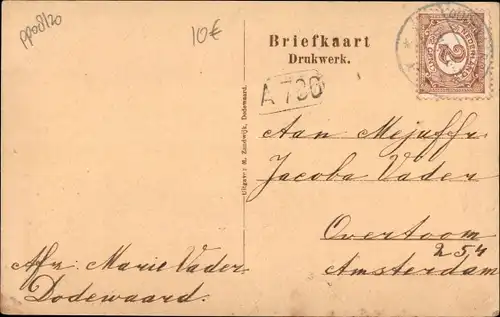 pp08/20
10€
Briefkaart
Drukwerk.
A 786
Aan Mejuffr
Jacoba Vader
Overtoom
254
Amsterdam
Afz. Marie Vader
Dodewaard.
Uitgever: M. Zandwijk, Dodewaard.